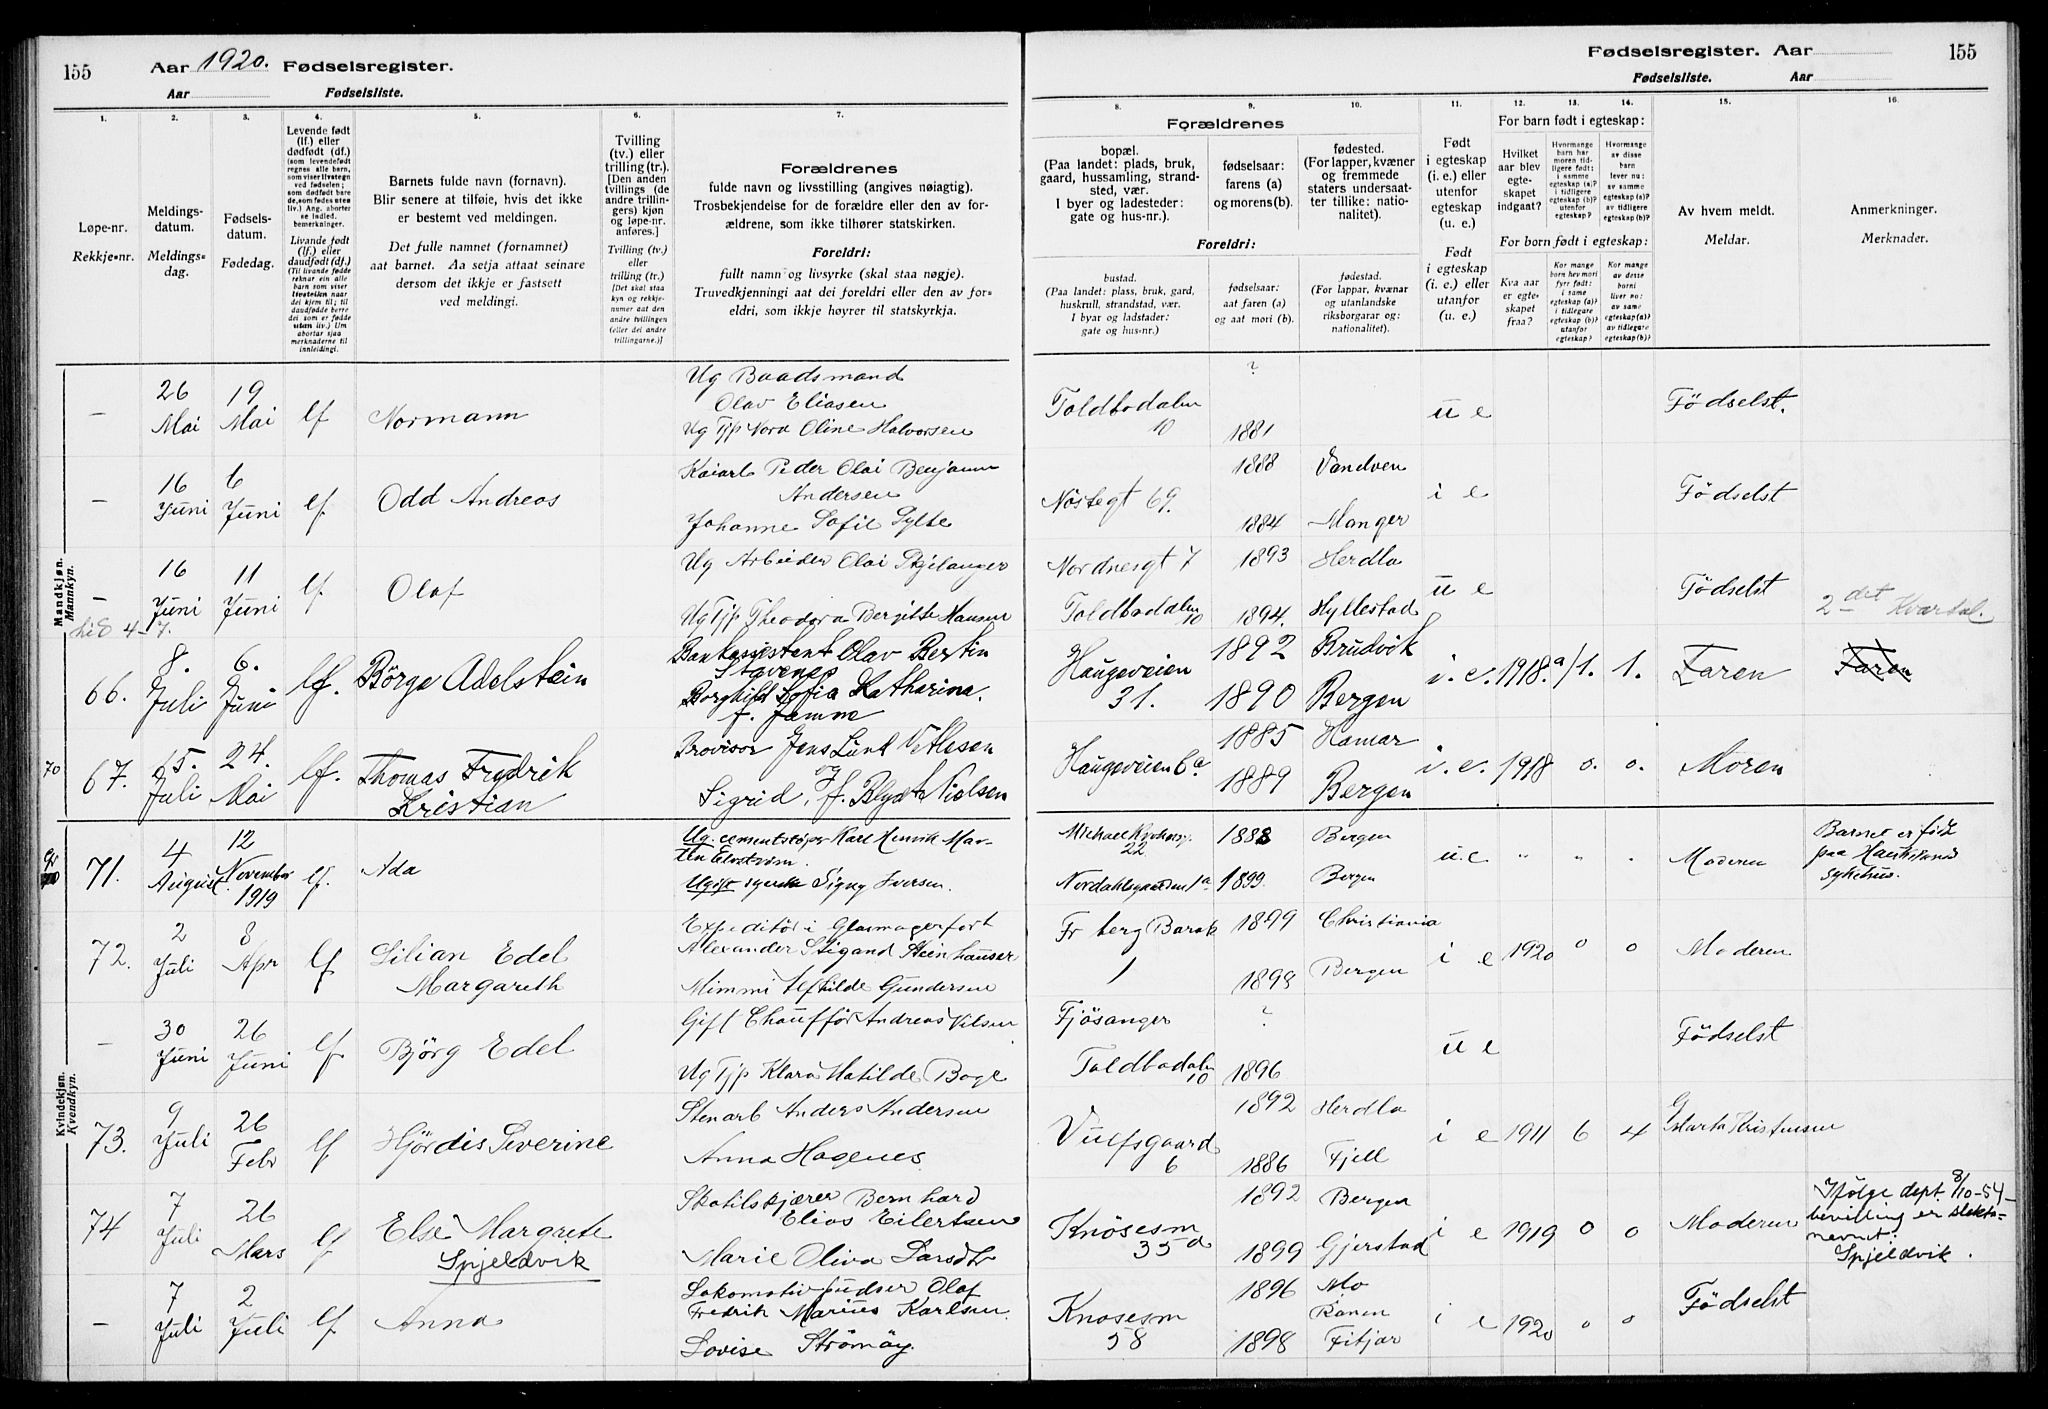 155
Aar 1920. Fødselsregister.
Aar Fødselsliste.
Fødselsregister. Aar
155
Fødselsliste. Aar
1. 2. 3. 4. 5. 6. 7. 8. 9. 10. 11. 12. 13. 14. 15. 16.
Løpe-nr.
Rekkje-nr.
Meldings-
datum.
Meldings-
dag.
Fødsels-
datum.
Fødedag.
Levende født
(lf.) eller
dødfødt (df.)
(som levendefødt
regnes alle barn,
som viser livstegn
ved fødselen;
som dødfødt bare
de, som fødes uten
liv.) Ang. aborter
se indled.
bemerkninger.
Livande født
(lf.) eller
daudfødt (df.)
(Til livande fødde
reknar ein alle
barn som viser
livsteikn naar
dei kjem til; til
daudfødde berre
dei som er fødde
utan liv.) Um
abortar sjaa
merknaderne til
innleidingi.
Barnets fulde navn (fornavn).
Blir senere at tilføie, hvis det ikke
er bestemt ved meldingen.
Det fulle namnet (fornamnet)
aat barnet. Aa setja attaat seinare
dersom det ikkje er fastsett
ved meldingi.
Tvilling
(tv.) eller
trilling (tr.).
[Den anden
tvillings (de
andre trillin-
gers) kjøn
og løpe-nr.
anføres.]
Tvilling (tv.)
eller
trilling (tr.)
[Det skal staa
kyn og rekkje-
numer aat den
andre tvillingen
(eller dei andre
trillingarne.)]
Forældrenes
fulde navn og livsstilling (angives nøiagtig).
Trosbekjendelse for de forældre eller den av for-
ældrene, som ikke tilhører statskirken.
Foreldri:
fullt namn og livsyrke (skal staa nøgje).
Truvedkjenningi aat dei foreldri eller den av for-
eldri, som ikkje høyrer til statskyrkja.
Forældrenes
bopæl.
(Paa landet: plads, bruk,
gaard, hussamling, strand-
sted, vær.
I byer og ladesteder:
gate og hus-nr.).
fødselsaar:
farens (a)
og morens (b).
fødested.
(For lapper, kvæner
og fremmede
staters undersaat-
ter tillike: natio-
nalitet).
Foreldri:
bustad.
(Paa landet: plass, bruk, gard,
huskrull, strandstad, vær.
I byar og ladstader:
gate og hus-nr.)
fødselsaar:
aat faren (a)
og aat mori (b).
fødestad.
(For lappar, kvænar
og utanlandske
riksborgarar og:
nationalitet).
Født
i egteskap
(i. e.) eller
utenfor
egteskap
(u. e.)
Født
i egteskap
(i. e.) eller
utanfor
(u. e.)
For barn født i egteskap:
Hvilket
aar blev
egte-
skapet
indgaat?
Hvormange
barn har
moren tid-
ligere født:
i samme
egteskap (a)?
i tidligere
egteskap (b)?
utenfor
egteskap?
Hvormange
av disse
barn
lever nu:
av samme
egteskap (a)?
av tidligere
egteskap (b)?
For born født i egteskap:
Kva aar
er egte-
skapet
fraa?
Kor mange
born hev mori
fyrr født:
i same
egteskap (a)?
i tidlegare
egteskap (b)?
utanfor
egteskap?
Kor mange
av desse
borni
liver no:
av same
egteskap (a)?
av tidlegare
egteskap (b)?
Av hvem meldt.
Meldar.
Anmerkninger.
Merknader.
Mandkjøn.
Mannkyn.
– 26 Mai 19 Mai lf Normann
Ug Baadsmand
Olav Eliasen
Ug Tjp Nora Oline Halvorsen
Toldbodalm 10 ? 1881 u e Fødselst.
– 16 Juni 6 Juni lf. Odd Andreas
Peder Olai Benjamin
Andersen
Johanne Sofie Sylte
Nøstegt 69. 1888 1884 Sandven Manger i e Fødselst
– 16 Juni 11 Juni lf. Olaf
Ug Arbeider Olai
Ug Tjp Theodora Bergitte Hansen
Nordnesgt 7 1893 Herdla
Toldbodalm 10 1894. Hyllestad u e Fødselst 2det Kvartal.
hid 4-7.
66. 8. Juli 6. Juni lf. Börge Adelstein
Bankassistent Olav Bertin
Stavenes
Borghild Sofia Katharina.
f. Jamne
Haugeveien 31. 1892 1890 Brudvik Bergen i. e. 1918. a/1. 1. Faren Faren
70
67. 15. Juli 24. Mai lf. Thomas Fredrik
Kristian
Provisor Jens Lund Vetlesen
og
Sigrid, f. Blydt Nielsen
Haugeveien 6a 1885 1889 Hamar Bergen i. e. 1918 0. 0. Moren
Kvindekjøn.
Kvendkyn.
71. 4 August 12 November 1919 lf. Ada
Ug. cementstøper Karl Henrik Mar-
tin
Ugift Signy Iversen.
22 1882 Bergen
Nordahlsgaarden 1a 1899. Bergen u. e " " " Moderen
Barnet er født
paa Haukeland
sykehus.
72. 2 Juli 8 Apr lf Lilian Edel
Margareth
Expeditör i Glasmagerfort
Alexander Stigand Steinhauser
Mimmi Alfhilde Gundersen
Fr berg Barak 1 1899 1898 Christiania Bergen i e 1920 0 0 Moderen
– 30 Juni 26 Juni lf. Björg Edel
Gift Chauffør Andreas Nilsen
Ug Tjp Klara Matilde Boge
Fjösanger ?
Toldbodalm 10 1896 u e Fødselst
73. 9 Juli 26 Febr lf Hjördis Severine
Stenarb Anders Andersen
Anna Hagenes
Vulfsgaard 6 1892 1886 Herdla Fjell i e 1911 6 4 Marta Kristensen
74 7 Juli 26 Mars lf Else Margrete
Spjeldvik
Skotilskjærer Bernhard
Elias Eilertsen
Marie Oliva Larsdtr
Knösesm 35a 1892 1899 Bergen Gjerstad i e 1919 0 0 Moderen
Ifølge dept. 8/10-54-
bevilling er slekts-
navnet:
Spjeldvik.
– 7 Juli 2 Juli lf Anna
Lokomotivpudser Olaf
Fredrik Marius Karlsen.
Lovise Strömöy.
Knosesm 58 1896 1898 Mo Ranen Fitjar i e 1920 0 0 Fødselst